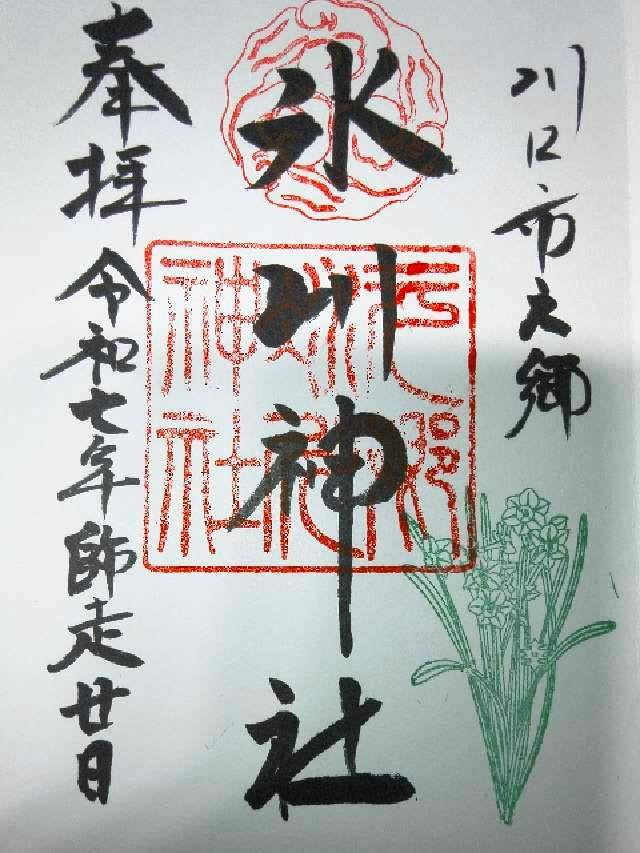 川口市元郷
氷川神社
奉拝 令和七年師走廿日
元郷
氷川
神社